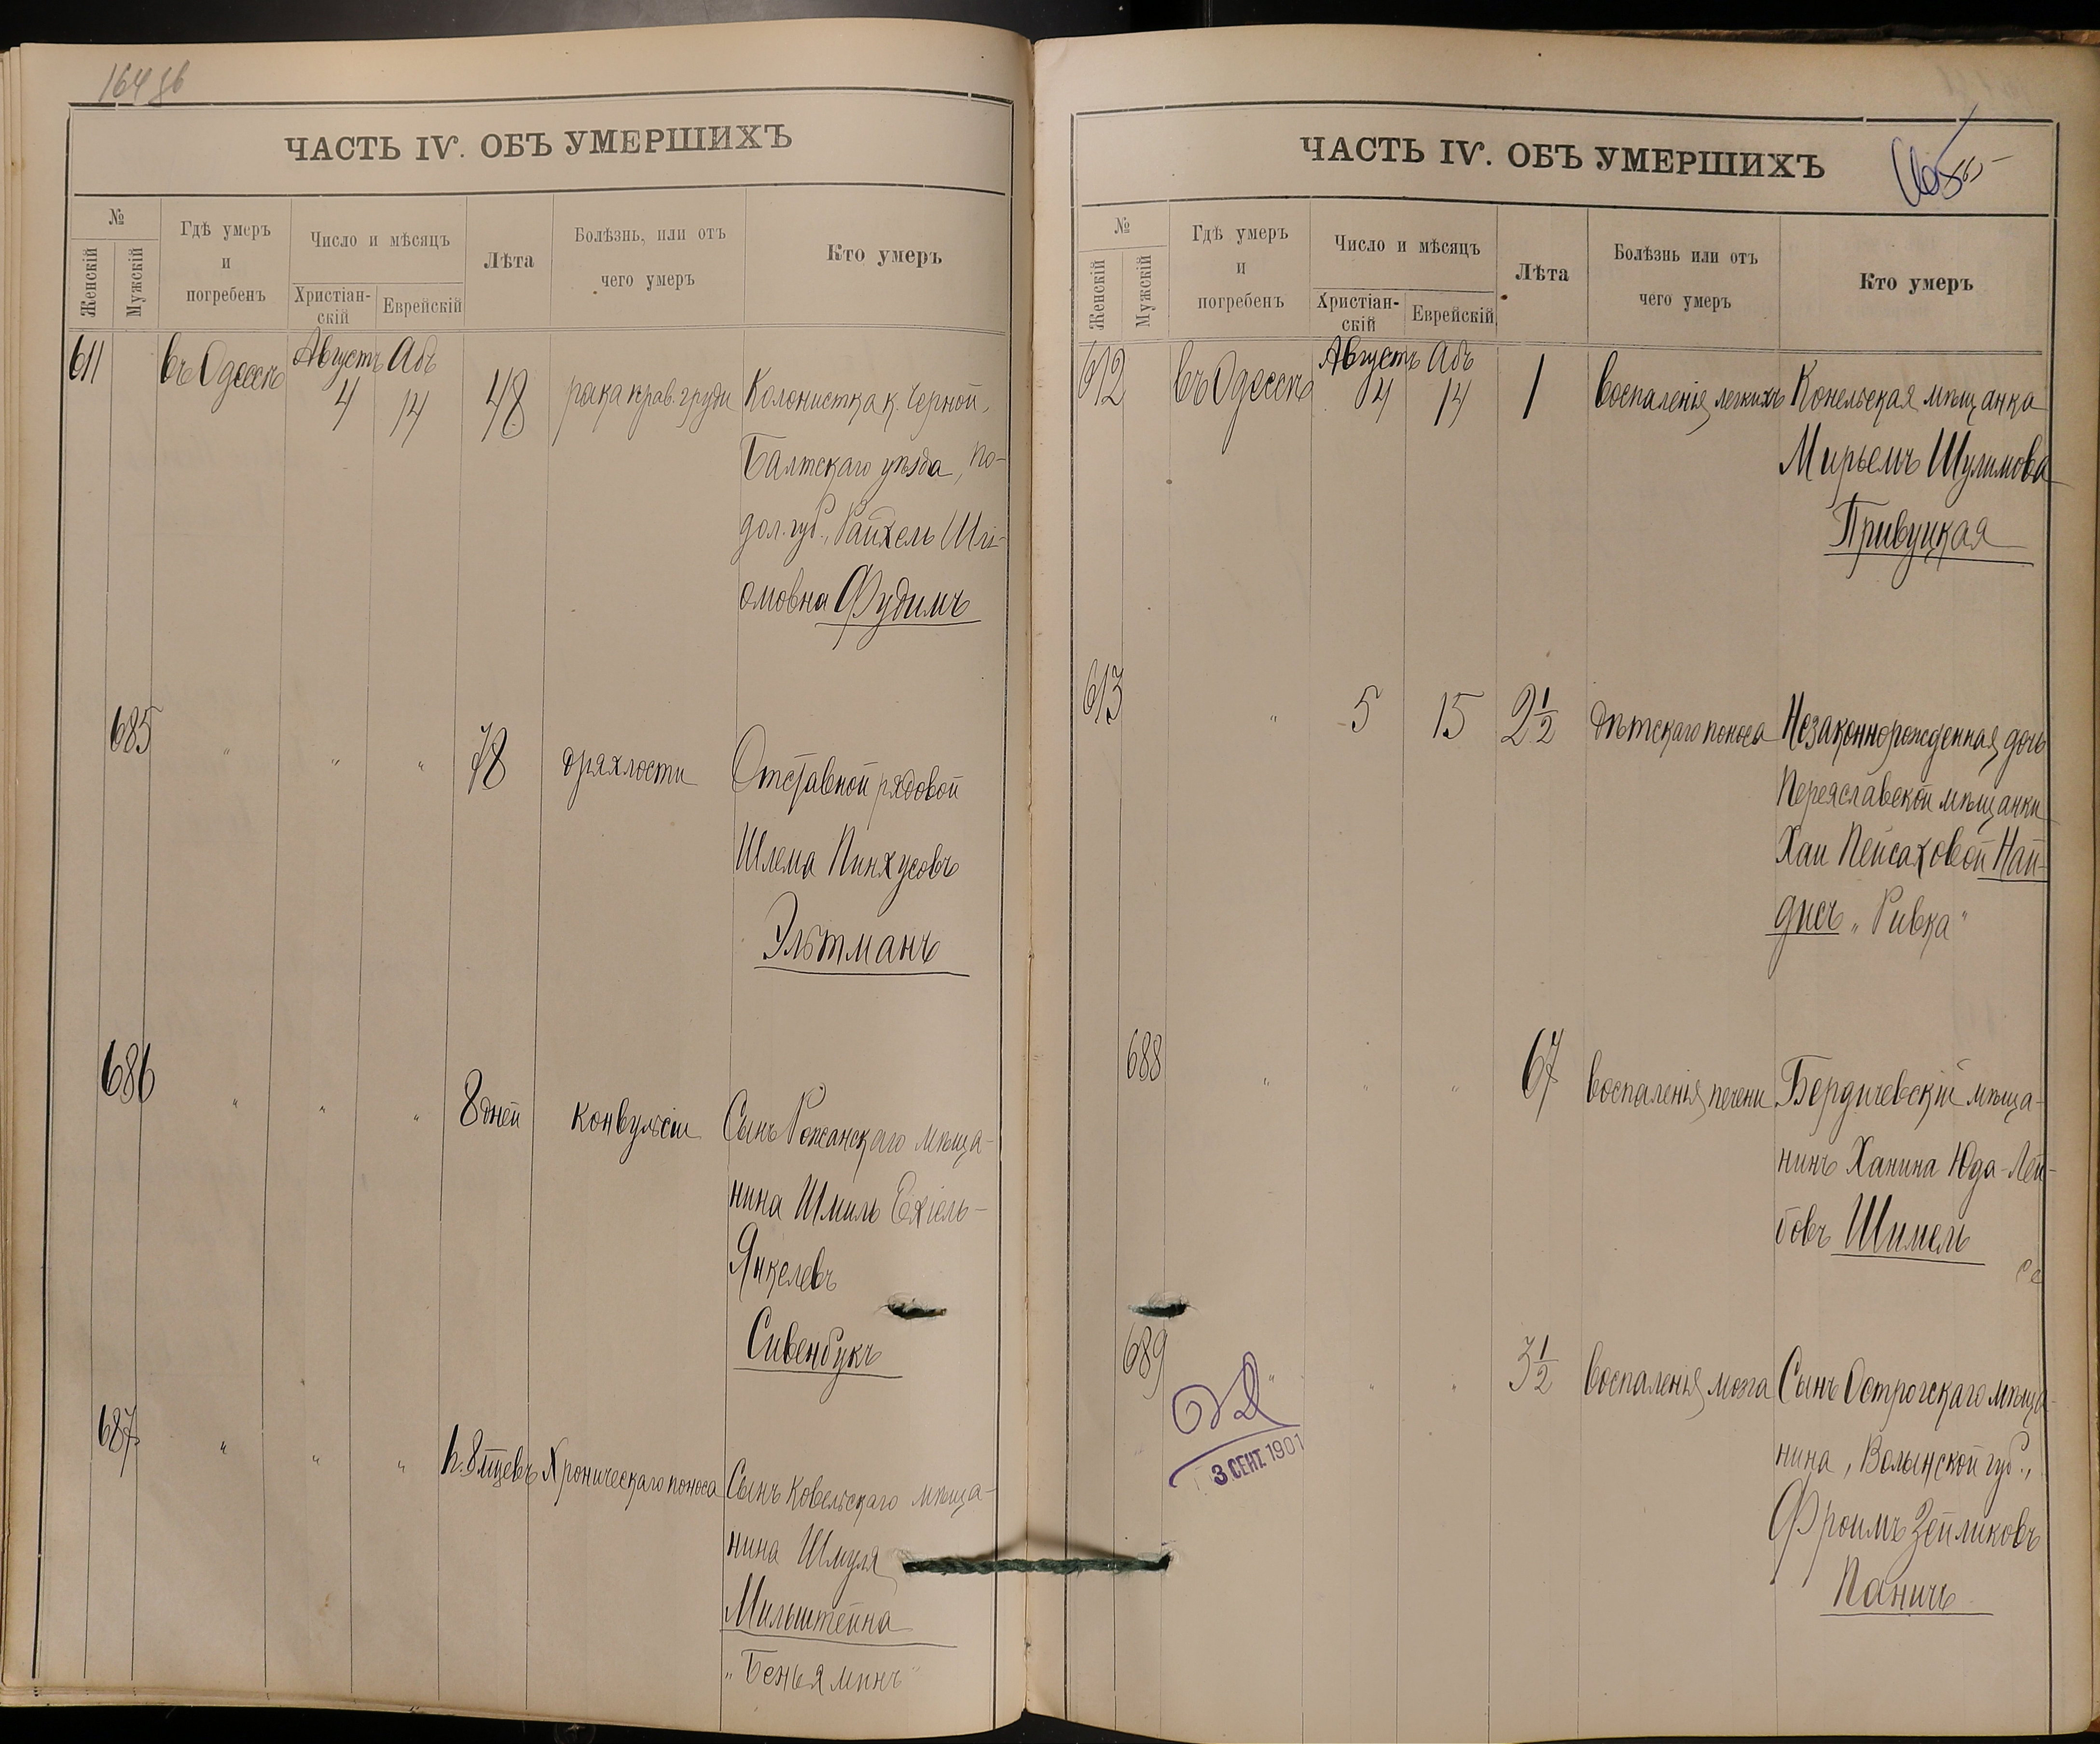 164 об
ЧАСТЬ IV. ОБЪ УМЕРШИХЪ
№
Женскій
Мужскій
Гдѣ умеръ
и
погребенъ
Число и мѣсяцъ
Христіан-
скій
Еврейскій
Лѣта
Болѣзнь, или отъ
чего умеръ
Кто умеръ
611 въ Одессѣ Августъ 4 Абъ 14 48 рака прав. груди Колонистка к. Черной,
Балтскаго уѣзда, По-
дол. губ., Райхель Шлі-
омовна Фудимъ
685 " " " 78 дряхлости Отставной рядовой
Шлема Пинхусовъ
Эльтманъ
686 " " " 8 дней конвульсіи Сынъ Рожанскаго мѣща-
нина Шмиль Ехіель-
Янкелевъ
Сивенбукъ
687 " " " 8 мѣцевъ Хроническаго поноса Сынъ Ковельскаго мѣща-
нина Шмуля
Мильштейна
"Беньяминъ"
ЧАСТЬ IV. ОБЪ УМЕРШИХЪ
165
№
Женскій
Мужскій
Гдѣ умеръ
и
погребенъ
Число и мѣсяцъ
Христіан-
скій
Еврейскій
Лѣта
Болѣзнь или отъ
чего умеръ
Кто умеръ
612 въ Одессѣ Августъ 4 Абъ 14 1 воспаленія легкихъ Конельская мѣщанка
Мирьемъ Шулимова
Привуцкая
613 " 5 15 2½ дѣтскаго поноса Незаконнорожденная дочь
Переяславской мѣщанки
Хаи Пейсаховой Най-
дисъ "Ривка"
688 " " " 67 воспаленія печени Бердичевскій мѣща-
нинъ Ханина Юда-Лей-
бовъ Шимель
689 " " " 3½ воспаленія мозга Сынъ Острогскаго мѣща-
нина, Волынской губ.,
Фроимъ Зейликовъ
Паничъ
3 СЕНТ. 1901